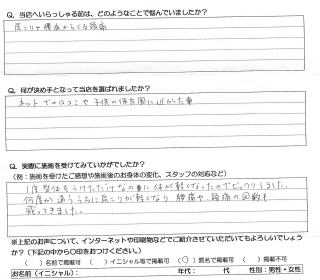 Q. 当店へいらっしゃる前は、どのようなことで悩んでいましたか?
肩こりや腰痛からくる頭痛
Q. 何が決め手となって当店を選ばれましたか?
ネットでの口コミや子供の保育園に近かった事
Q. 実際に施術を受けてみていかがでしたか?
(例:施術を受けたご感想や施術後のお身体の変化、スタッフの対応など)
1度整体をうけただけなのに体が軽くなったのでビックリしました。
何度か通ううちに肩こりが軽くなり 腰痛や、頭痛の回数も
減ってきました。
※上記のお声について、インターネットや印刷物などでご紹介させていただいてもよろしいでしょう
か?(下記の中から○印をおつけください。)
( )名前で掲載可 ( )イニシャル等で掲載可 (○)匿名で掲載可 ( )掲載不可
お名前(イニシャル): 年代: 代 性別:男性・女性